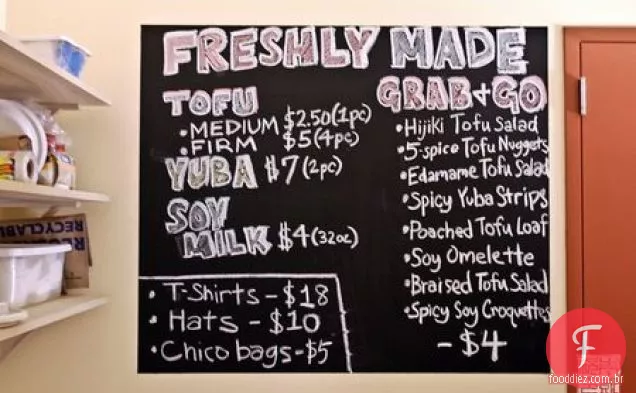 FRESHLY MADE
TOFU
• MEDIUM $2.50 (1pc)
• FIRM $5 (4pc)
YUBA $7 (2pc)
SOY
MILK $4 (32oz)
• T-Shirts - $18
• Hats - $10
• Chico bags - $5
GRAB + GO
• Hijiki Tofu Salad
• 5-spice Tofu Nuggets
• Edamame Tofu Salad
• Spicy Yuba Strips
• Poached Tofu Loaf
• Soy Omelette
• Braised Tofu Salad
• Spicy Soy Croquettes
- $4
RECYCLABLE
F
fooddiez.com.br